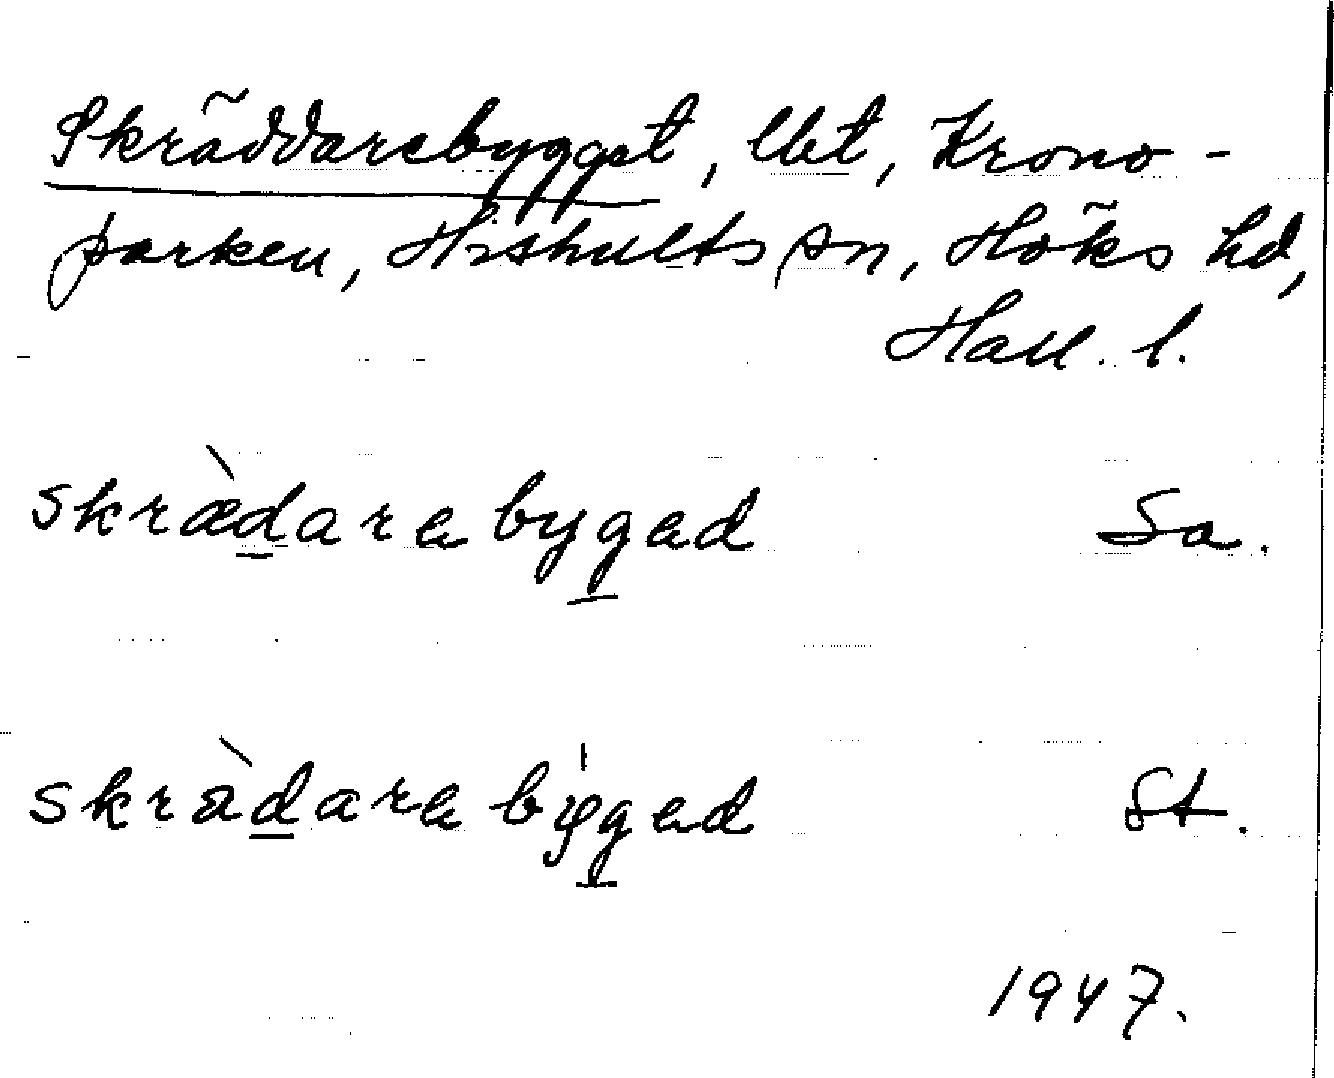 Skräddarebygget, lbt, Krono-
parken, Hishults sn, Höks hd,
Hall. l.
skræ̀darebyged Sa.
skràdarebyged St.
1947.